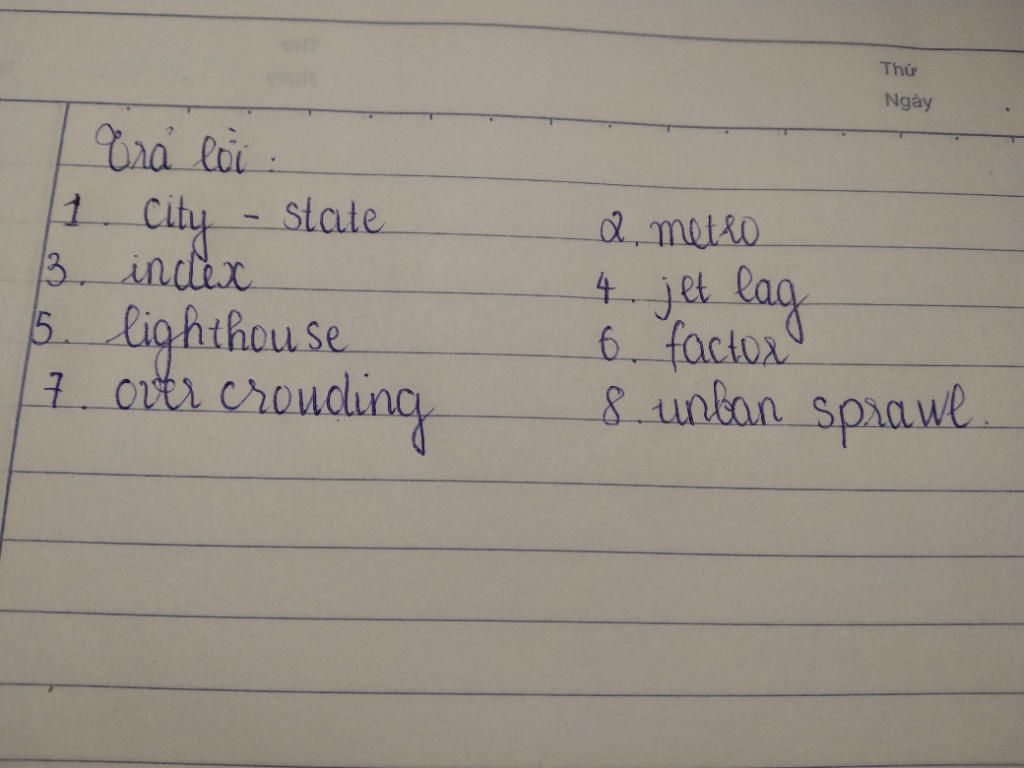 Thứ
Ngày
Trả lời :
1. city - state 2. metro
3. index 4. jet lag
5. lighthouse 6. factor
7. over crouding 8. unban sprawl.